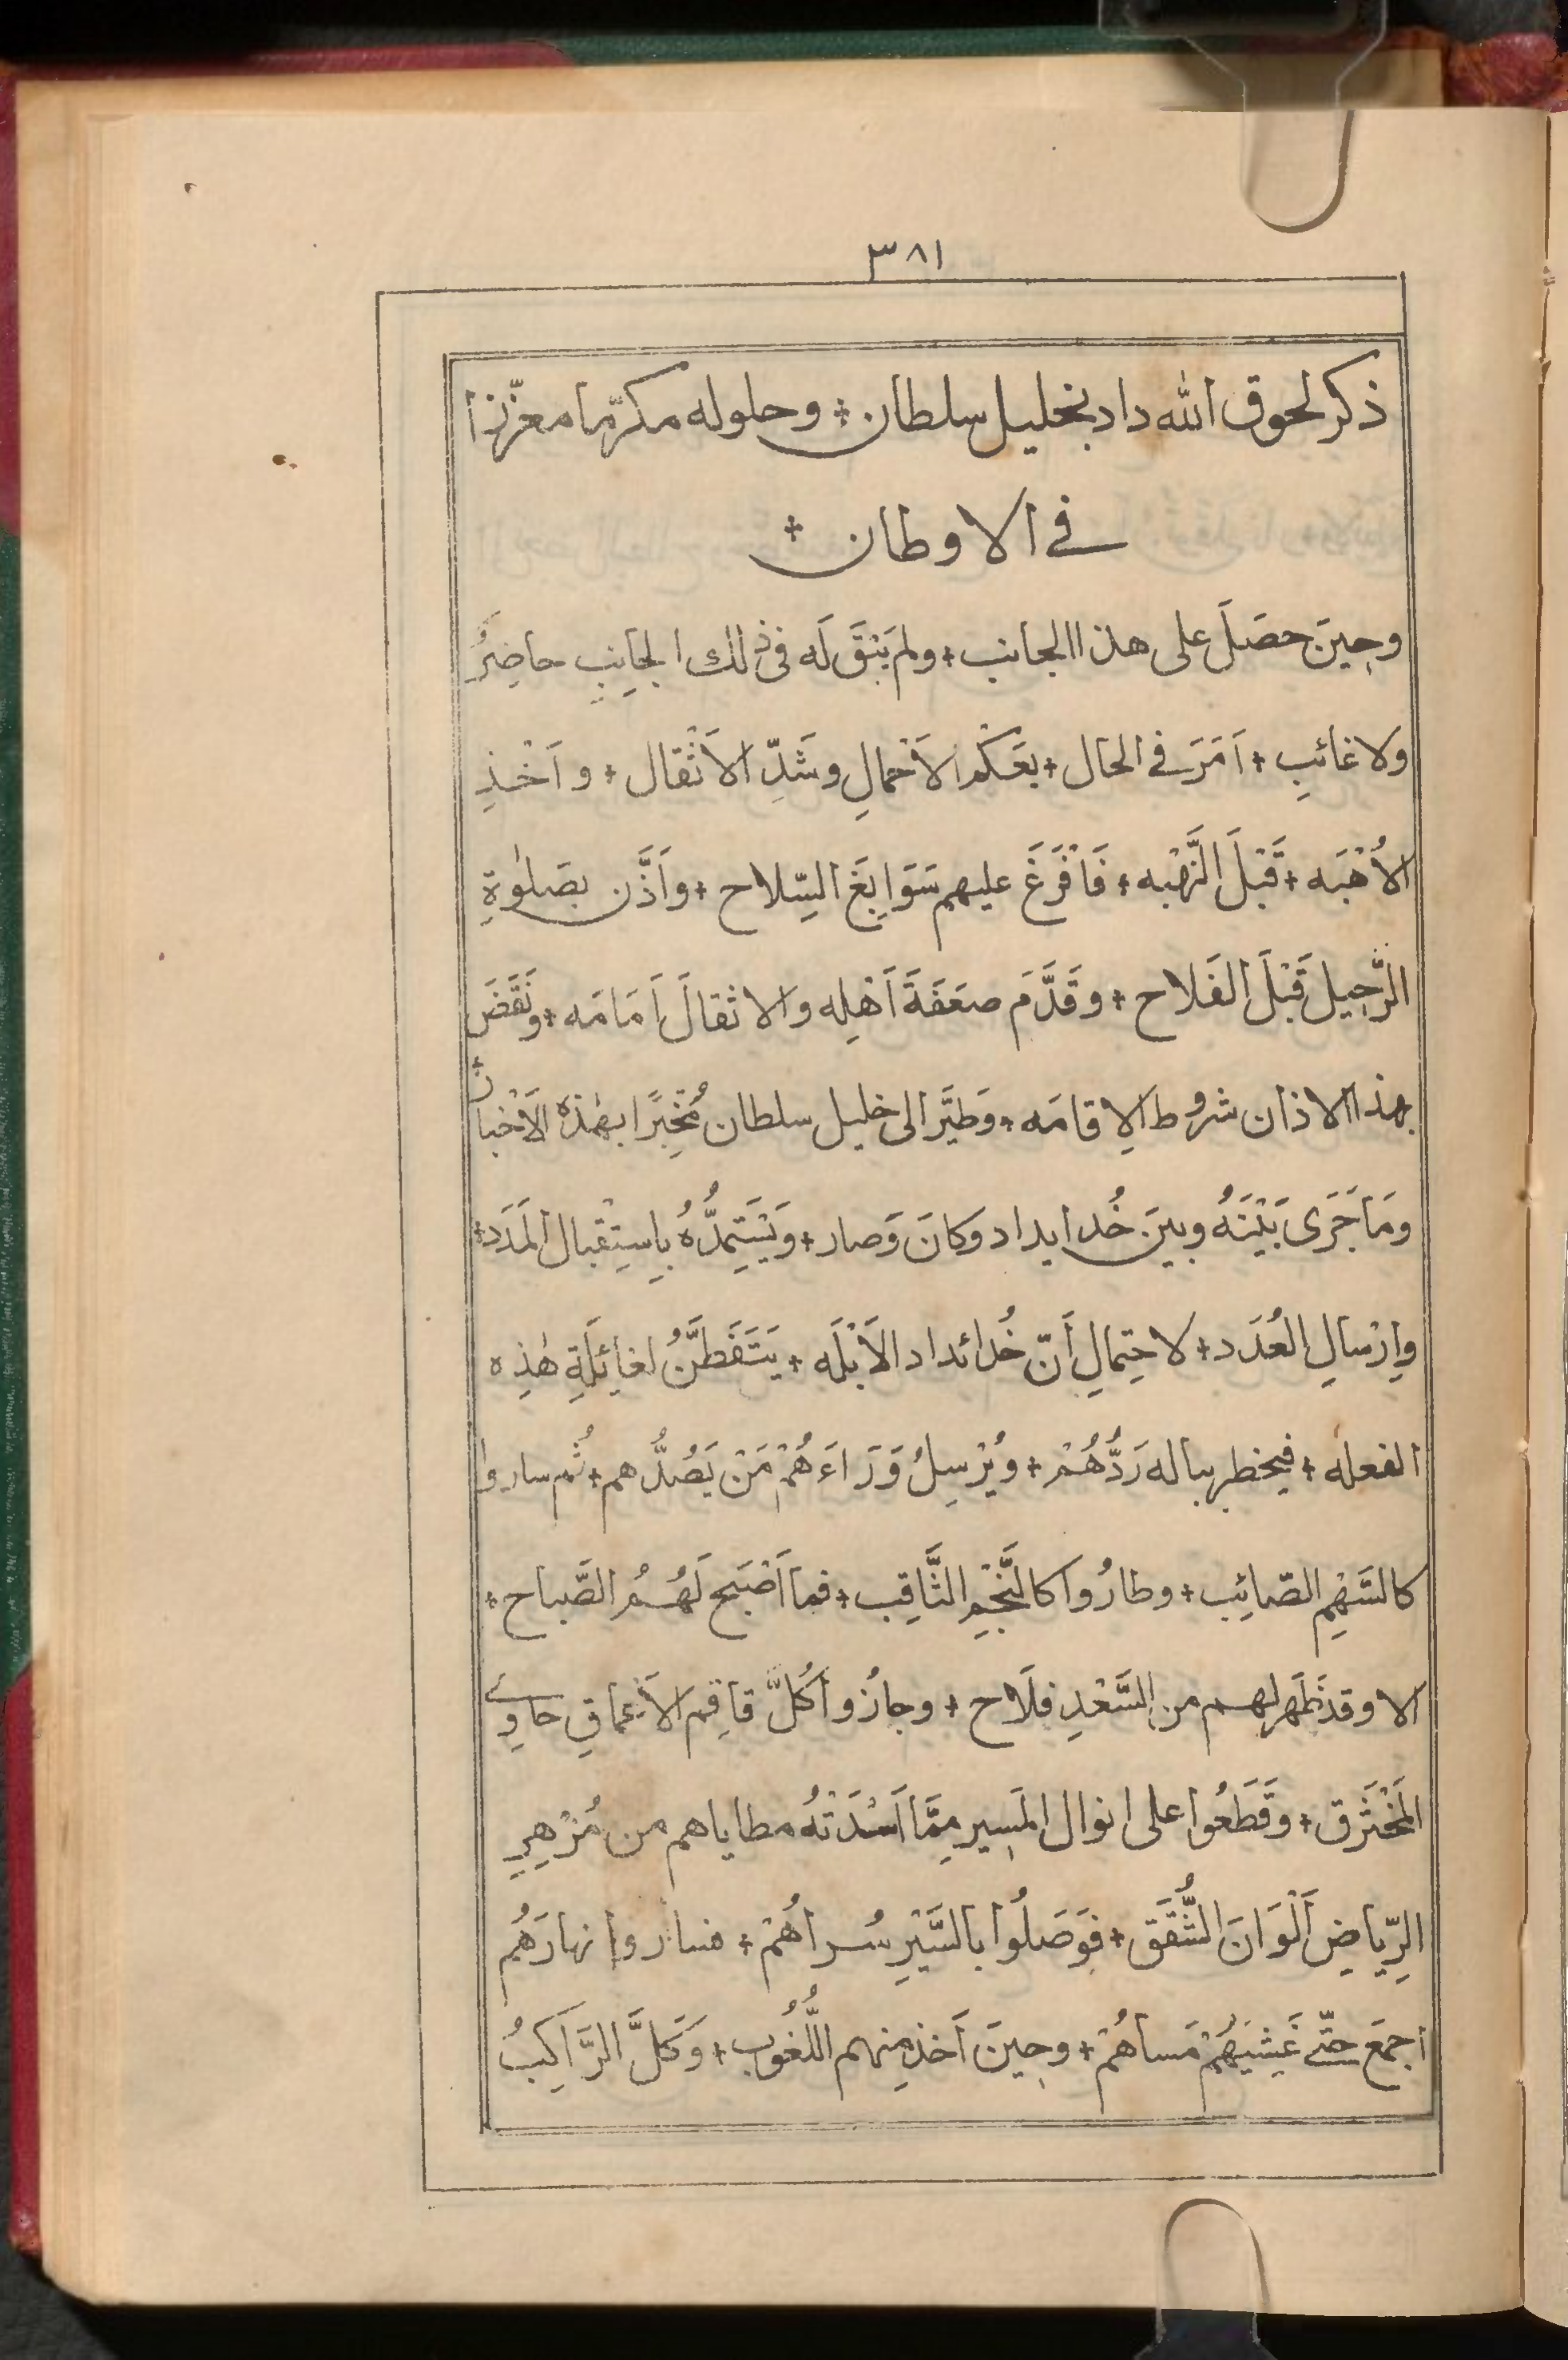 ٣٨١
ذكر لحوق الله داد بخليل سلطان + وحلوله مكرّما معزّزا
في الاوطان +
وحِينَ حصَلَ على هذا الجانب + ولم يَبْقَ لَه في ذلك الجانِبِ حاضِرٌ
ولا غائبٍ + اَمَرَ في الحال + بعَكْم الاَحْمالِ وشَدِّ الاَثْقال + واَخْذِ
الاُهْبَه + قَبْلَ النَّهْبه + فَاَفْرَغَ عليهم سَوَابِغَ السِّلاح + واَذَّن بصَلٰوةِ
الرَّحِيل قَبْلَ الفَلاح + وقَدَّمَ ضعَفَةَ اَهْلِه والاثقالَ اَمَامَه + ونَقَضَ
بهذا الاذان شروط الاِقامَه + وَطيَّر الى خليل سلطان مُخْبِرًا بهٰذه الاَخْبار +
ومَا جَرَى بَيْنَهُ وبينَ خُدايداد وكانَ وَصار + وَيَسْتَمِدُّهُ بِاِستِقْبال المَدَد +
واِرْسالِ العُدَد + لاحتِمالِ اَنّ خُدائداد الاَبْلَه + يَتَفَطَّنُ لغائِلَةِ هٰذِه
الفعله + فيخطر بباله رَدُّهُمْ + ويُرْسِلُ وَرَاءَهُمْ مَنْ يَصُدُّهم + ثُم ساروا
كالسَّهْمِ الصّائِب + وطارُوا كالنَّجْمِ الثَّاقِب + فما اَصْبَحَ لَهُمُ الصَّباح +
الا وقد ظَهر لهم من السَّعْدِ فلَاح + وجازُوا كُلَّ قاتِم الاَعماقِ حاوِي
المُخْتَرَق + وقَطَعُوا على انوال المَسِير مِمَّا اَسْدَتْهُ مطاياهم من مُزْهِرِ
الرِّياضِ اَلْوَانَ الشُّقَق + فوَصَلُوا بالسَّيْرِ سُراهُمْ + فساروا نهارَهُم
اجمعَ حتّى غَشِيَهُمْ مَساهُمْ + وحِينَ اَخذ مِنهم اللُّغُوب + وَكَلَّ الرَّاكِبُ